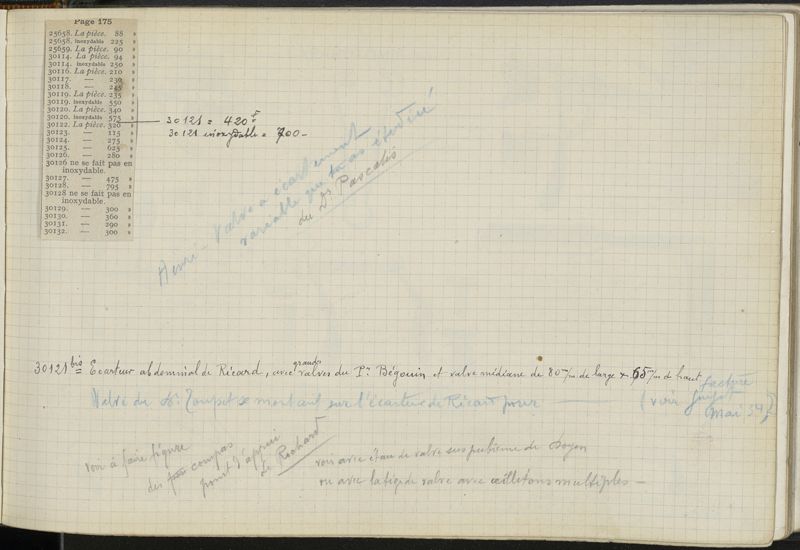 Page 175
25658. La pièce. 88 »
25658. inoxydable 225 »
25659. La pièce. 90 »
30114. La pièce. 94 »
30114. inoxydable 250 »
30116. La pièce. 210 »
30117. — 230 »
30118. — 245 »
30119. La pièce. 235 »
30119. inoxydable 550 »
30120. La pièce. 340 »
30120. inoxydable 575 »
30122. La pièce. 320 »
30123. — 115 »
30124. — 275 »
30125. — 625 »
30126. — 280 »
30126 ne se fait pas en
inoxydable.
30127. — 475 »
30128. — 795 »
30128 ne se fait pas en
inoxydable.
30129. — 300 »
30130. — 360 »
30131. — 290 »
30132. — 300 »
30121 = 420 F
30121 inoxydable = 700 —
Henri - Valve à écartement
variable que tu as étudié
du Dr Pascalis
30121 bis = Ecarteur abdominal de Ricard, avec grandes valves du Pr Bégouin et valve médiane de 80 m/m de large x 65 m/m de haut
Valve du Dr se montant sur l'écarteur de Ricard pour — (voir facture
Mai 34)
voir à faire figure
des compas
point d'appui
de Rochard
voir avec étau de valve sus pubienne de Doyen
ou avec la tige de valve avec œilletons multiples —